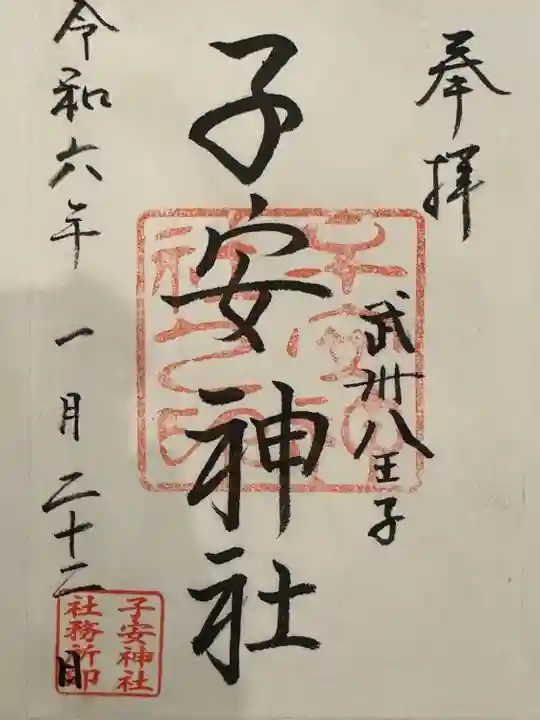 奉拝
武州八王子
子安神社
令和六年 一月二十二日
子安神社
社務所印